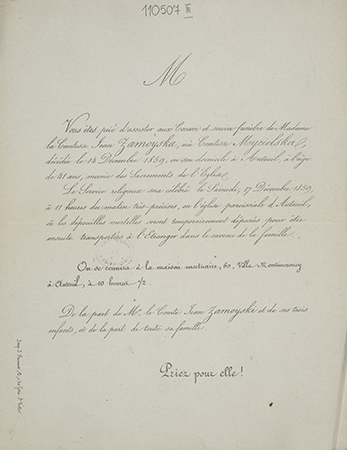 110507 III
M
Vous êtes prié d'assister aux Convoi et service funèbre de Madame
la Comtesse Jean Zamoyska, née Comtesse Mycielska,
décédée le 14 Décembre 1859, en son domicile à Auteuil, à l'âge
de 21 ans, munie des Sacrements de l'Eglise.
Le Service religieux sera célébré le Samedi, 17 Décembre 1859,
à 11 heures du matin très précises, en l'Eglise paroissiale d'Auteuil,
où les dépouilles mortelles seront temporairement déposées pour être
ensuite transportées à l'Etranger dans le caveau de la famille.
On se réunira à la maison mortuaire, 60, Villa Montmorency
à Auteuil, à 10 heures 1/2.
De la part de Mr. le Comte Jean Zamoyski et de ses trois
enfants, et de la part de toute sa famille.
Priez pour elle!